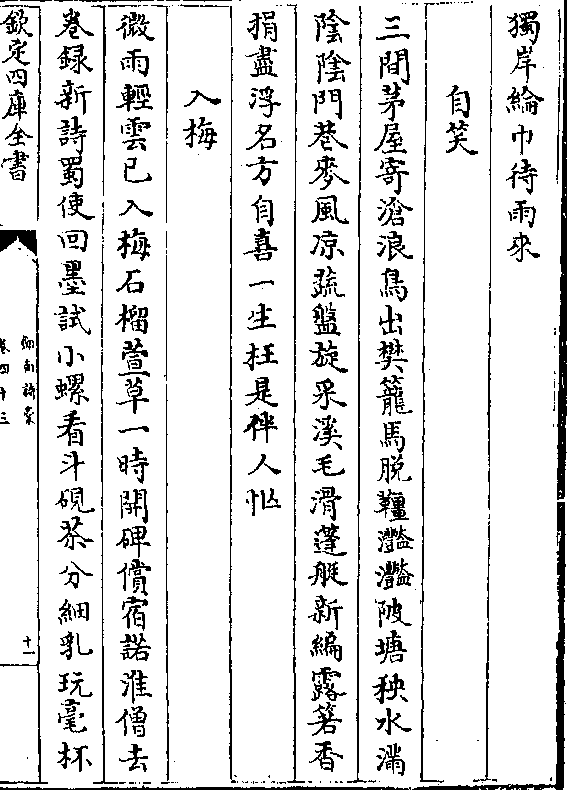 獨岸綸巾待雨來
自笑
三間茅屋寄滄浪鳥出樊籠馬脱韁灩灩陂塘秧水滿
陰陰門巷麥風凉蔬盤旋采溪毛滑蓬艇新編露箬香
捐盡浮名方自喜一生枉是伴人忙
入梅
微雨輕雲已入梅石榴萱草一時開碑償宿諾淮僧去
卷録新詩蜀使回墨試小螺看斗硯茶分細乳玩毫杯
欽定四庫全書
劒南詩稾
卷四十三
十一